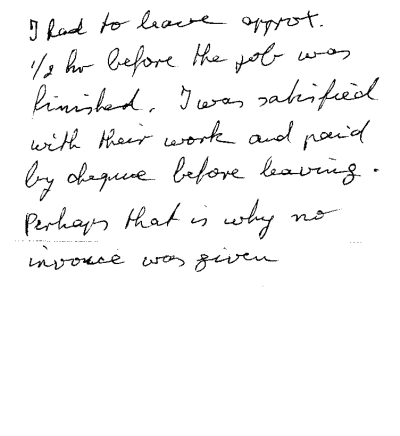 I had to leave approx.
1/2 hr before the job was
finished. I was satisfied
with their work and paid
by cheque before leaving.
Perhaps that is why no
invoice was given